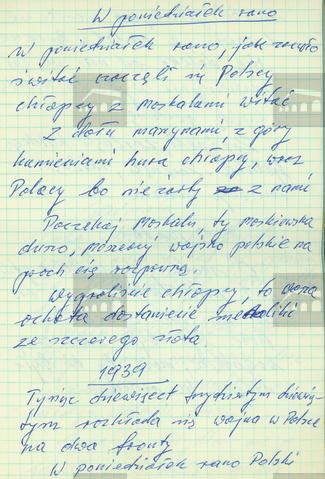 W poniedziałek rano
W poniedziałek rano, jak zaczęło
świtać zaczęli się Polscy
chłopcy z moskalami witać
Z dołu maszynami, z góry
kamieniami hura chłopcy, wraz
Polacy bo nie źarty z nami
Poczekaj moskalu, ty moskiewska
duszo, możesz wojsko polskie na
proch cię rozproszą.
Wygraliście chłopcy, to wasza
ochota dostaniecie medaliki
ze szczerego złota
1939
Tysiąc dziewięset trzydziestym dziewią-
tym rozkłada się wojna w Polsce
na dwa fronty
W poniedziałek rano Polski